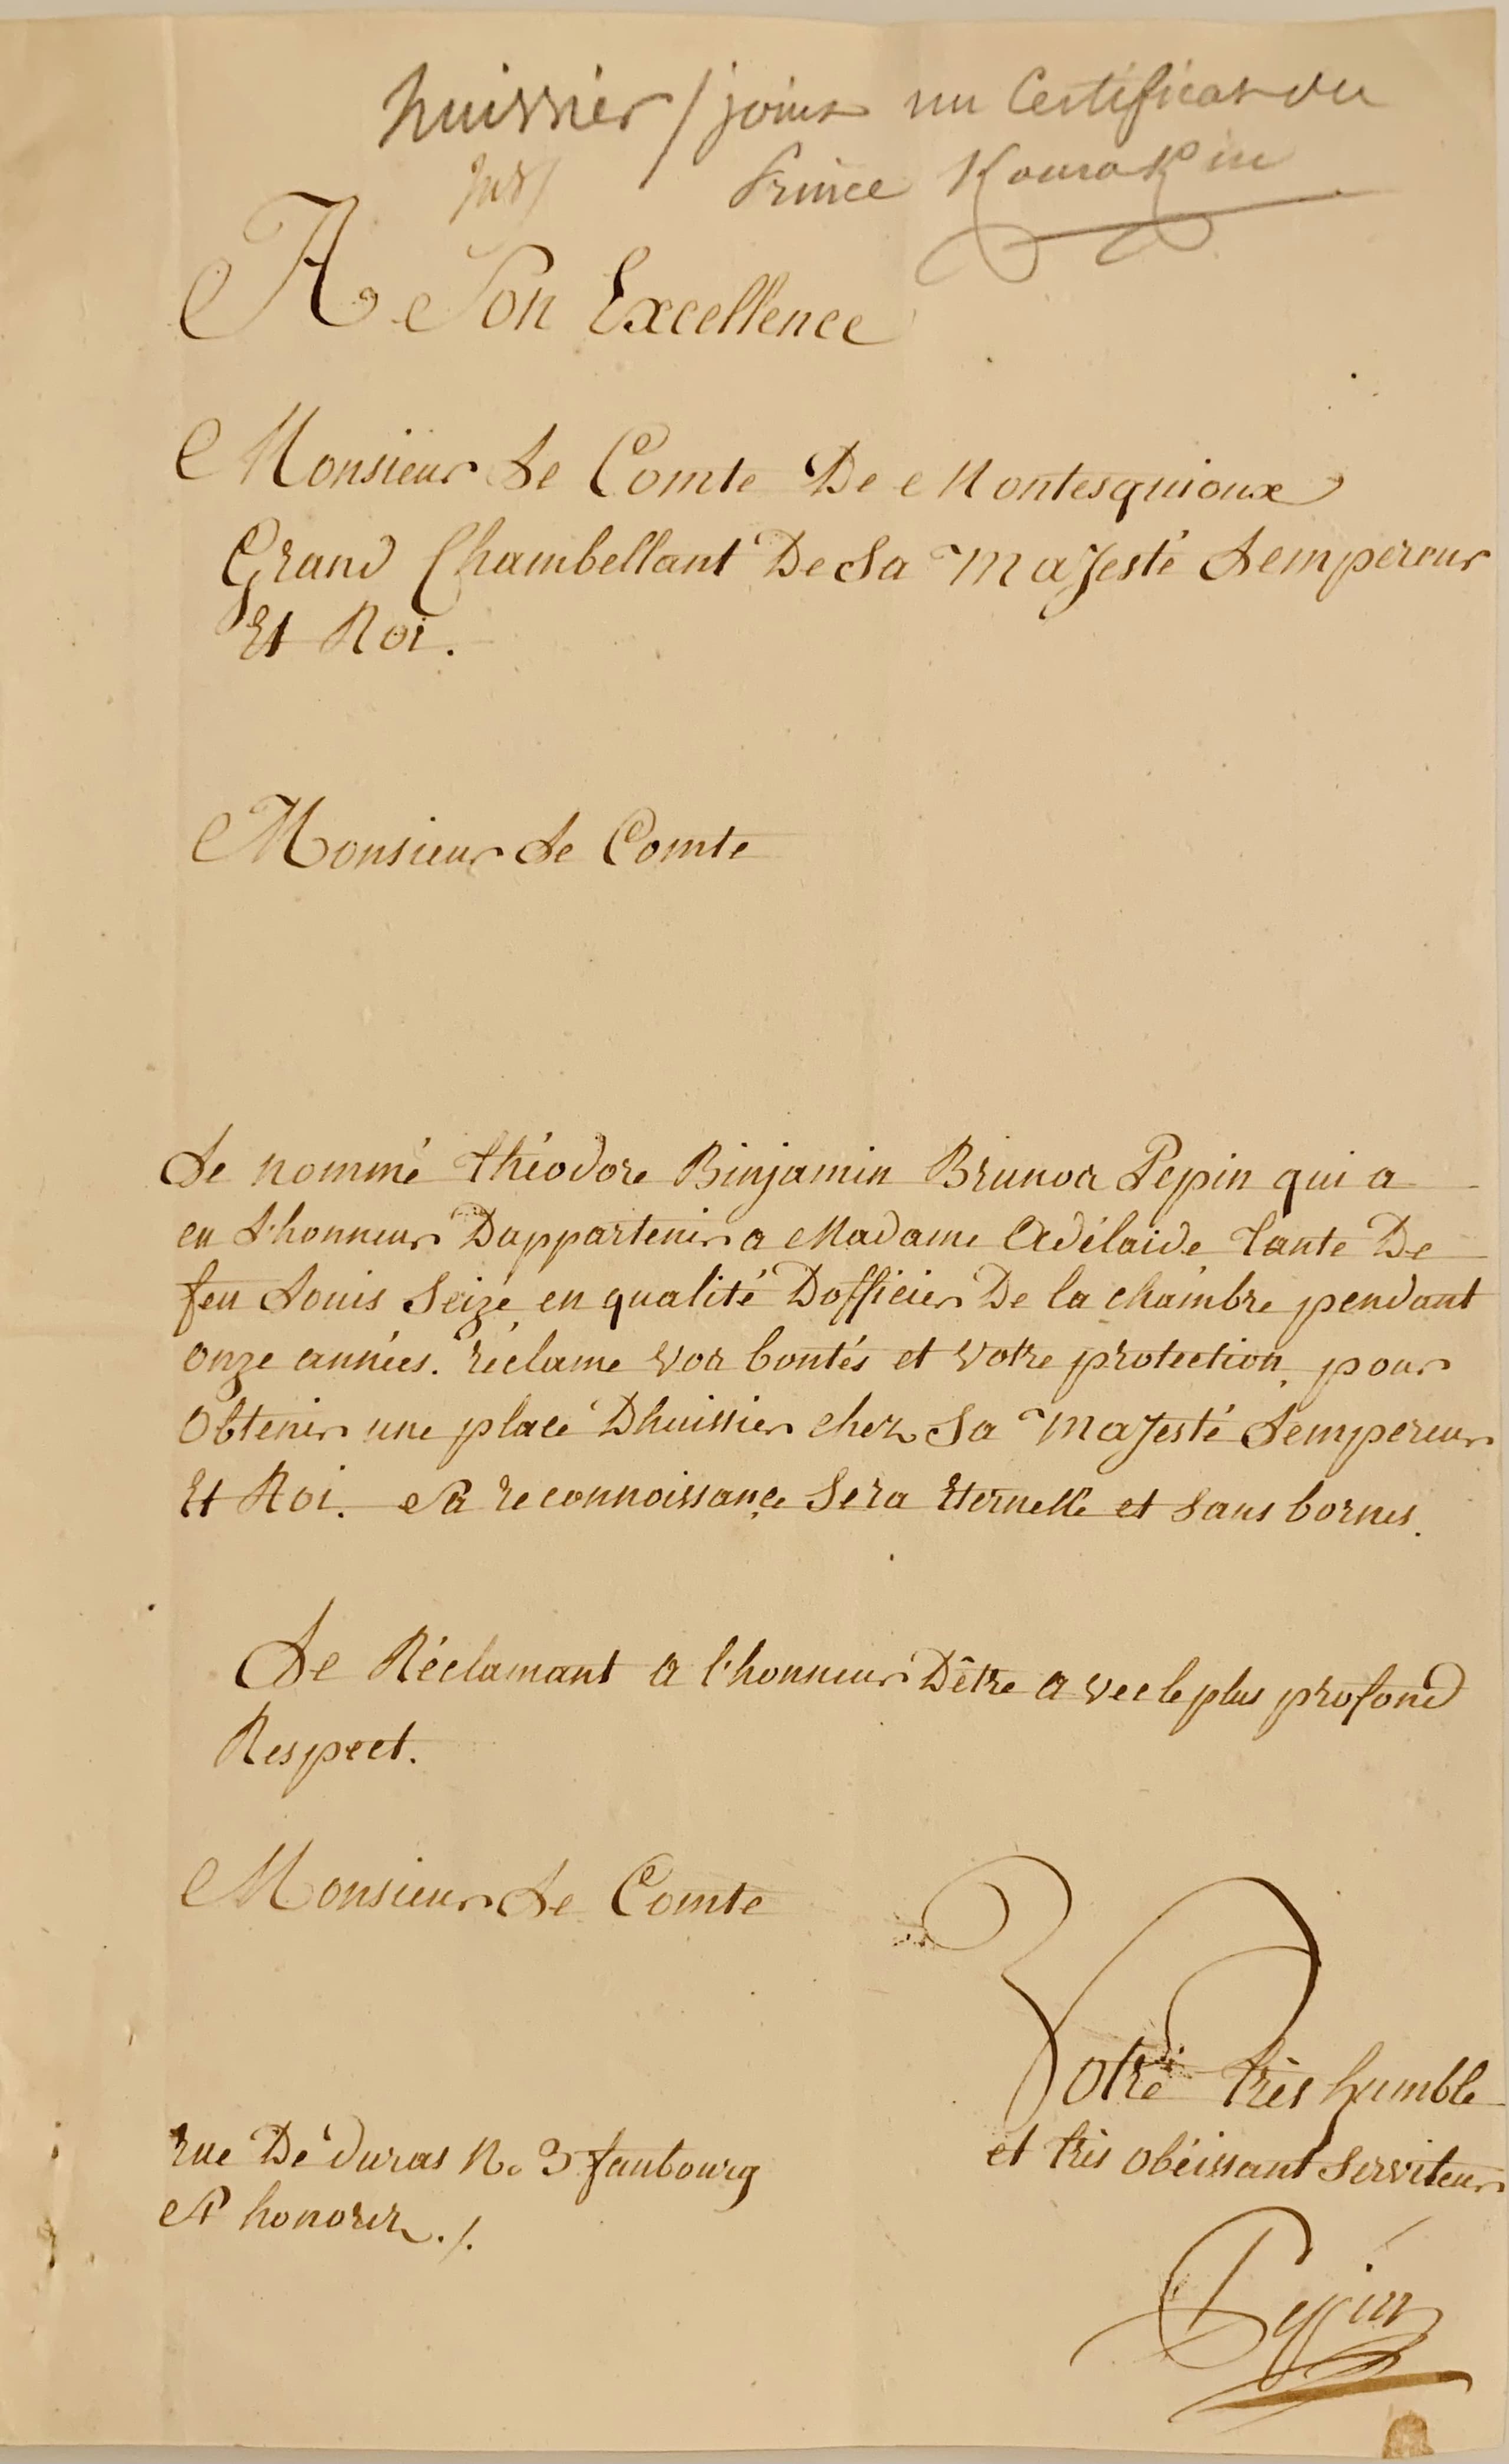 huissier / joint un Certificat du
Prince Kourakin
A Son Excellence
Monsieur Le Comte De Montesquioux
Grand Chambellant De Sa Majesté Lempereur
Et Roi.
Monsieur Le Comte
Le nommé théodore Binjamin Brunoa Pepin qui a
eu L'honneur Dappartenir a Madame Adélaide Tante De
feu Louis Seize, en qualité Dofficier De la chambre pendant
onze années. réclame vos bontés et votre protection, pour
Obtenir une place Dhuissier chez Sa Majesté Lempereur
Et Roi. Sa reconnoissance Sera Eternelle et Sans bornes.
Le Réclamant a l'honneur Dêtre avec le plus profond
Respect.
Monsieur Le Comte
Votre très humble
et très obéissant Serviteur
rue De duras No 3 faubourg
St honorez ./.
Pepin